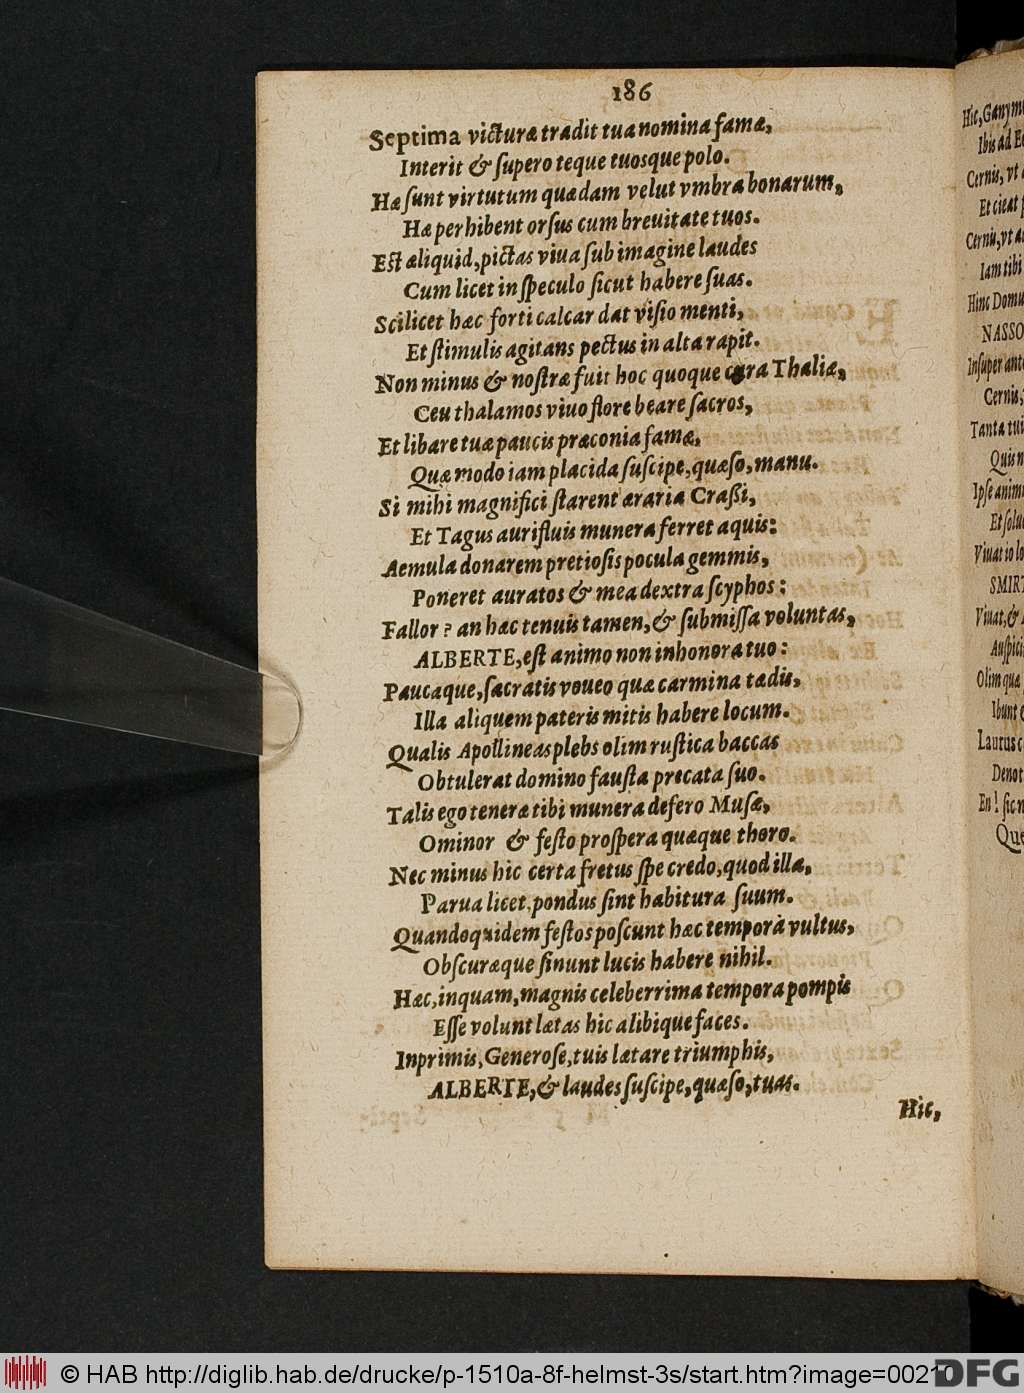 186
Septima victuræ tradit tua nomina famæ,
Interit & ſupero teque tuosque polo.
Hæ ſunt virtutum quædam velut vmbra bonarum,
Hæ perhibent orſus cum breuitate tuos.
Eſt aliquid, pictas viua ſub imagine laudes
Cum licet in ſpeculo ſicut habere ſuas.
Scilicet hæc forti calcar dat viſio menti,
Et ſtimulis agitans pectus in alta rapit.
Non minus & noſtræ fuit hoc quoque cura Thaliæ,
Ceu thalamos viuo flore beare ſacros,
Et libare tuæ paucis præconia famæ,
Quæ modo iam placida ſuſcipe, quæſo, manu.
Si mihi magnifici ſtarent æraria Craßi,
Et Tagus aurifluis munera ferret aquis:
Aemula donarem pretioſis pocula gemmis,
Poneret auratos & mea dextra ſcyphos:
Fallor? an hæc tenuis tamen, & ſubmiſſa voluntas,
ALBERTE, eſt animo non inhonora tuo:
Paucaque, ſacratis voueo quæ carmina tædis,
Illa aliquem pateris mitis habere locum.
Qualis Apollineas plebs olim ruſtica baccas
Obtulerat domino fauſta precata ſuo.
Talis ego teneræ tibi munera defero Muſæ,
Ominor & feſto proſpera quæque thoro.
Nec minus hic certa fretus ſpe credo, quod illæ,
Parua licet, pondus ſint habitura ſuum.
Quandoquidem feſtos poſcunt hæc tempora vultus,
Obſcuræque ſinunt lucis habere nihil.
Hæc, inquam, magnis celeberrima tempora pompis
Eſſe volunt lætas hic alibique faces.
Inprimis, Generoſe, tuis lætare triumphis,
ALBERTE, & laudes ſuſcipe, quæſo, tuas.
Hic,
Hic, Ganym
Ibis ad
Cernis, vt
Et cieat
Cernis, vt
Iam tibi
Hinc
NASSO
Inſuper
Cernis,
Tanta
Quis
Ipſe
Et
Viuat io
SMIRT
Viuat, &
Olim quæ
Ibunt
Laurus
Denot
En! ſic
© HAB http://diglib.hab.de/drucke/p-1510a-8f-helmst-3s/start.htm?image=00210
DFG